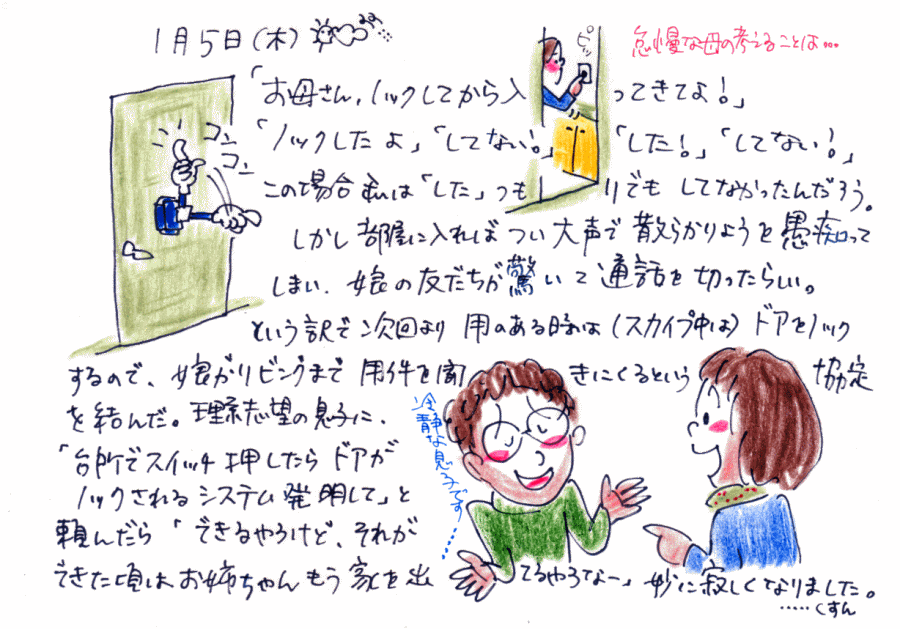 1月5日(木)
怠慢な母の考えることは…
ピッ
「お母さん、ノックしてから入ってきてよ!」
コン
コン
「ノックしたよ」「してない!」「した!」「してない!」
この場合私は「した」つもりでもしてなかったんだろう。
しかし部屋に入ればつい大声で散らかりようを愚痴って
しまい、娘の友だちが驚いて通話を切ったらしい。
という訳で次回より用のある時は(スカイプ中は)ドアをノック
するので、娘がリビングまで用件を聞きにくるという協定
を結んだ。理系志望の息子に、
「台所でスイッチ押したらドアが
ノックされるシステム発明して」と
頼んだら「できるやろけど、それが
できた頃はお姉ちゃんもう家を出てるやろなー」妙に寂しくなりました。
……くすん
冷静な息子です……